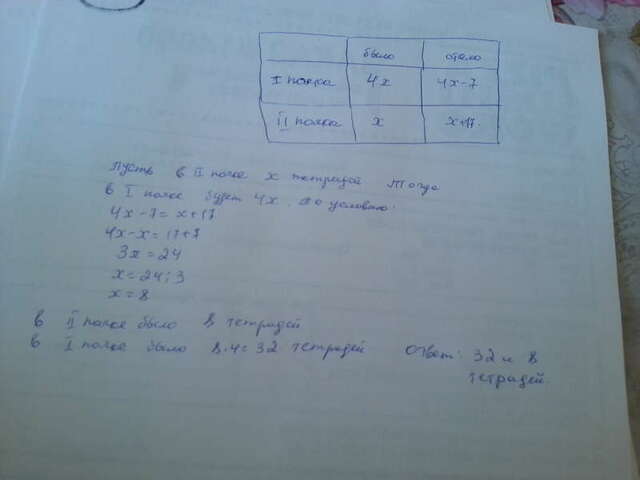 было стало
I полка 4x 4x-7
II полка x x+17
Пусть в II полке x тетрадей Тогда
в I полке будет 4x. По условию:
4x-7=x+17
4x-x=17+7
3x=24
x=24:3
x=8
в II полке было 8 тетрадей
в I полке было 8·4=32 тетрадей Ответ: 32 и 8
тетрадей.